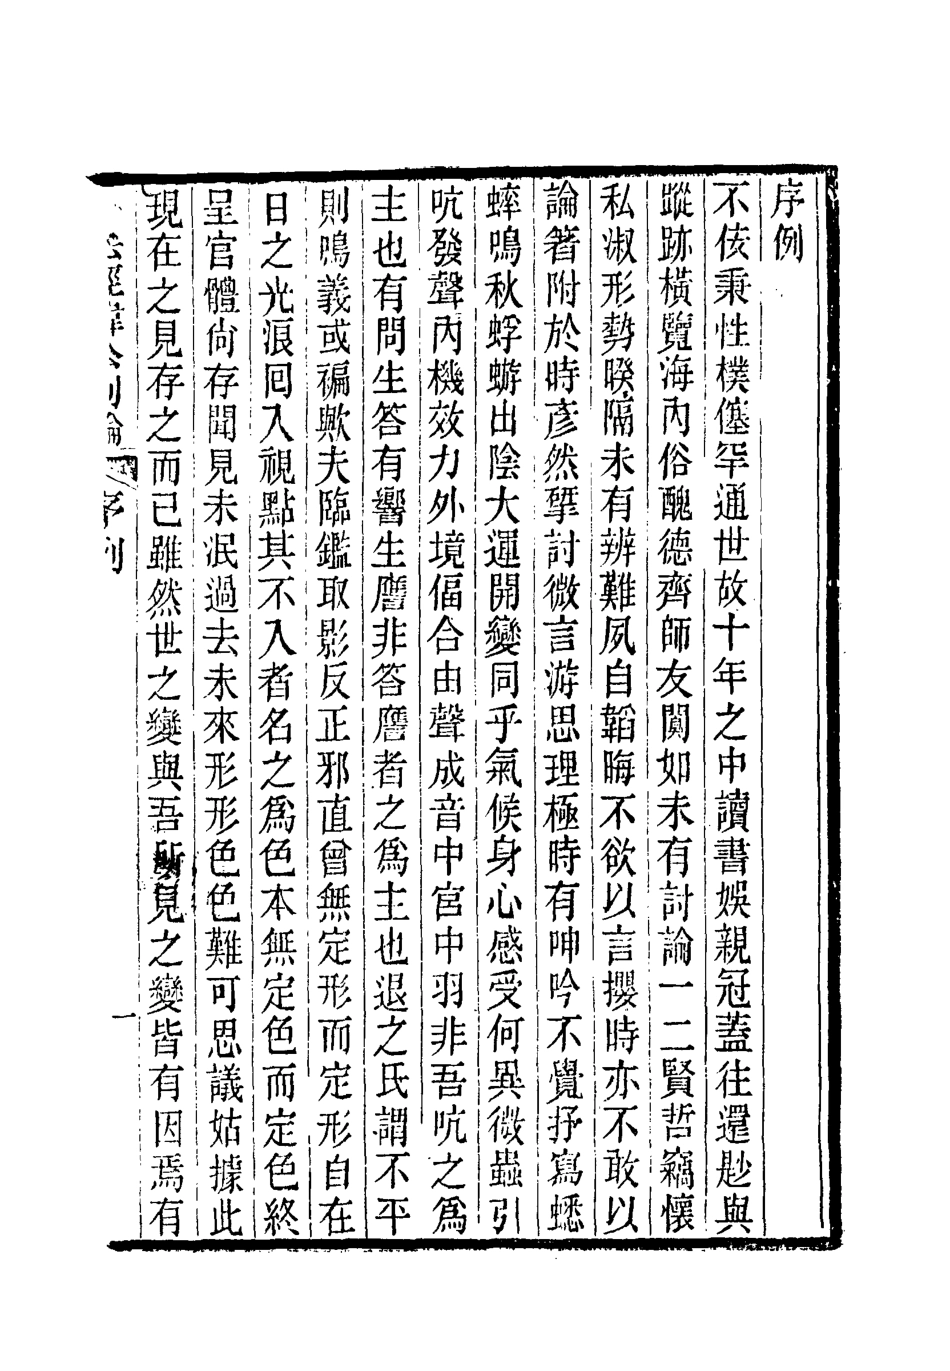 序例
不佞秉性樸僿罕通世故十年之中讀書娛親冠蓋往還尟與
蹤跡橫覽海內俗醜德齊師友闃如未有討論一二賢哲竊懷
私淑形勢暌隔未有辨難夙自韜晦不欲以言攖時亦不敢以
論著附於時彥然揅討微言游思理極時有呻吟不覺抒寫蟋
蟀鳴秋蜉蝣出陰大運開變同乎氣候身心感受何異微蟲引
吭發聲內機效力外境偪合由聲成音中宮中羽非吾吭之爲
主也有問生答有響生譍非答譍者之爲主也退之氏謂不平
則鳴義或褊歟夫臨鑑取影反正邪直曾無定形而定形自在
日之光浪囘入視點其不入者名之爲色本無定色而定色終
呈官體尙存聞見未泯過去未來形形色色難可思議姑據此
現在之見存之而已雖然世之變與吾所見之變皆有因焉有
一